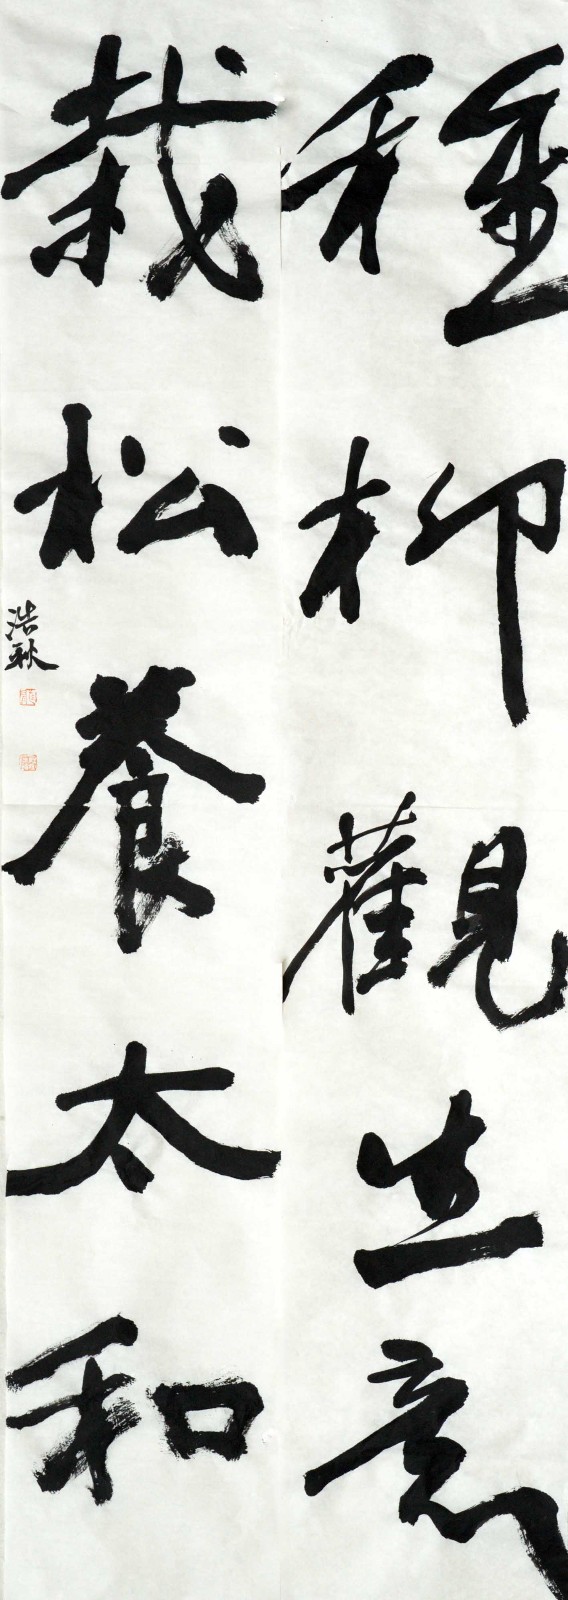 種柳觀生意
栽松養太和
浩秋